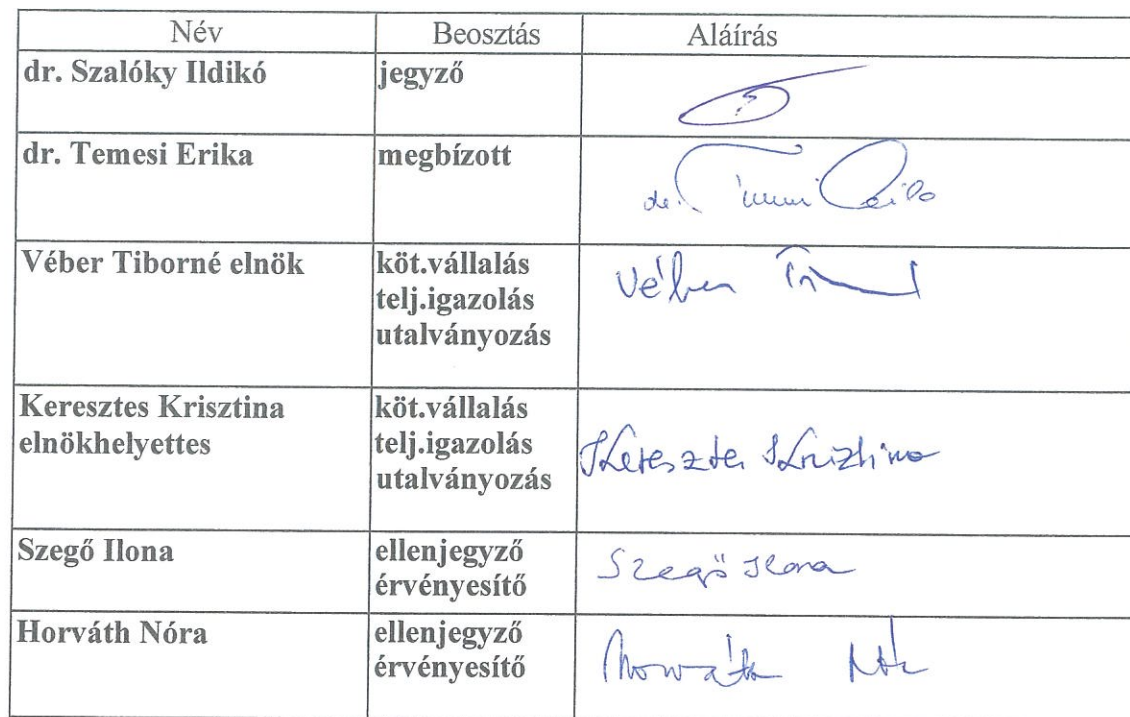 Név Beosztás Aláírás
dr. Szalóky Ildikó jegyző
dr. Temesi Erika megbízott
dr.
Véber Tiborné elnök köt.vállalás
telj.igazolás
utalványozás
Véber
Keresztes Krisztina köt.vállalás
elnökhelyettes telj.igazolás
utalványozás
Keresztes Krisztina
Szegő Ilona ellenjegyző
érvényesítő
Szegő Ilona
Horváth Nóra ellenjegyző
érvényesítő
Horváth